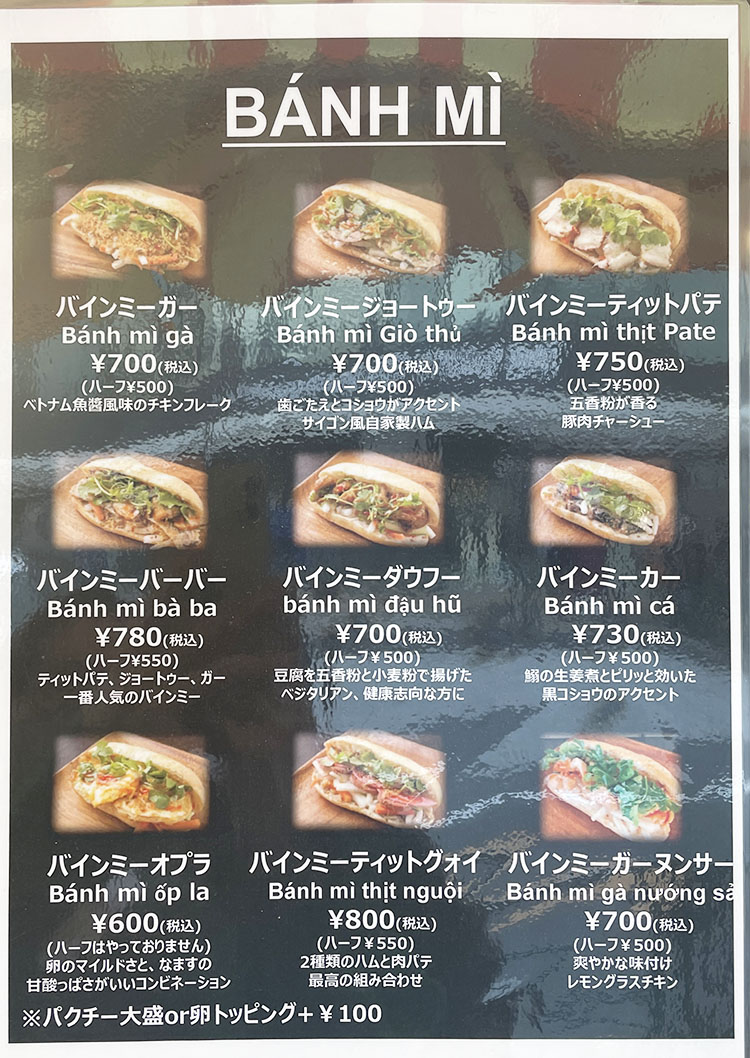 BÁNH MÌ
バインミーガー
Bánh mì gà
¥700(税込)
(ハーフ¥500)
ベトナム魚醬風味のチキンフレーク
バインミージョートゥー
Bánh mì Giò thủ
¥700(税込)
(ハーフ¥500)
歯ごたえとコショウがアクセント
サイゴン風自家製ハム
バインミーティットパテ
Bánh mì thịt Pate
¥750(税込)
(ハーフ¥500)
五香粉が香る
豚肉チャーシュー
バインミーバーバー
Bánh mì bà ba
¥780(税込)
(ハーフ¥550)
ティットパテ、ジョートゥー、ガー
一番人気のバインミー
バインミーダウフー
bánh mì đậu hũ
¥700(税込)
(ハーフ¥500)
豆腐を五香粉と小麦粉で揚げた
ベジタリアン、健康志向な方に
バインミーカー
Bánh mì cá
¥730(税込)
(ハーフ¥500)
鰯の生姜煮とピリッと効いた
黒コショウのアクセント
バインミーオプラ
Bánh mì ốp la
¥600(税込)
(ハーフはやっておりません)
卵のマイルドさと、なますの
甘酸っぱさがいいコンビネーション
バインミーティットグォイ
Bánh mì thịt nguội
¥800(税込)
(ハーフ¥550)
2種類のハムと肉パテ
最高の組み合わせ
バインミーガーヌンサー
Bánh mì gà nướng sả
¥700(税込)
(ハーフ¥500)
爽やかな味付け
レモングラスチキン
※パクチー大盛or卵トッピング+¥100